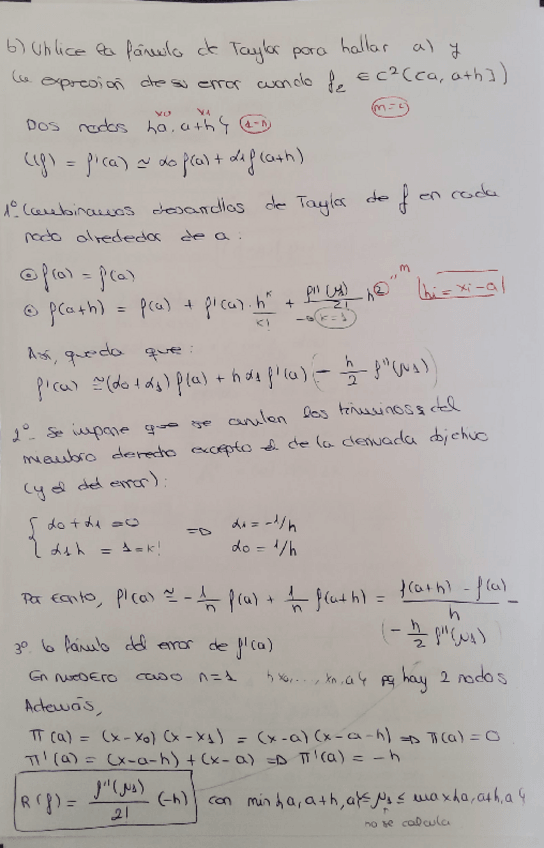 b) Utilice la fórmula de Taylor para hallar a) y
la expresión de su error cuando f₂ ∈ C²([a, a+h])
m=2
x0 x1
Dos nodos {a, a+h} 1=n
L(f) = f'(a) ≃ α0 f(a) + α1 f(a+h)
1º. Combinamos desarrollos de Taylor de f en cada
nodo alrededor de a:
⊙ f(a) = f(a)
⊙ f(a+h) = f(a) + f'(a)·h^k/k! + f''(μ1)/2! h^2 m |hi = xi - a|
→ k=1
Así, queda que:
f'(a) ≃ (α0+α1) f(a) + hα1 f'(a) (- h/2 f''(μ1))
2º. Se impone que se anulen los términos del
miembro derecho excepto el de la derivada objetivo
(y el del error):
{ α0 + α1 = 0 ⇒ α1 = -1/h
{ α1 h = 1 = k! α0 = 1/h
Por tanto, f'(a) ≃ -1/h f(a) + 1/h f(a+h) = (f(a+h) - f(a))/h -
(- h/2 f''(μ1))
3º. La fórmula del error de f'(a)
En nuestro caso n=1 {x0, ..., xn, a} hay 2 nodos
Además,
Π(a) = (x-x0)(x-x1) = (x-a)(x-a-h) ⇒ Π(a) = 0
Π'(a) = (x-a-h) + (x-a) ⇒ Π'(a) = -h
R(f) = f''(μ1)/2! (-h) con min{a, a+h, a} ≤ μ1 ≤ max{a, a+h, a}
no se calcula